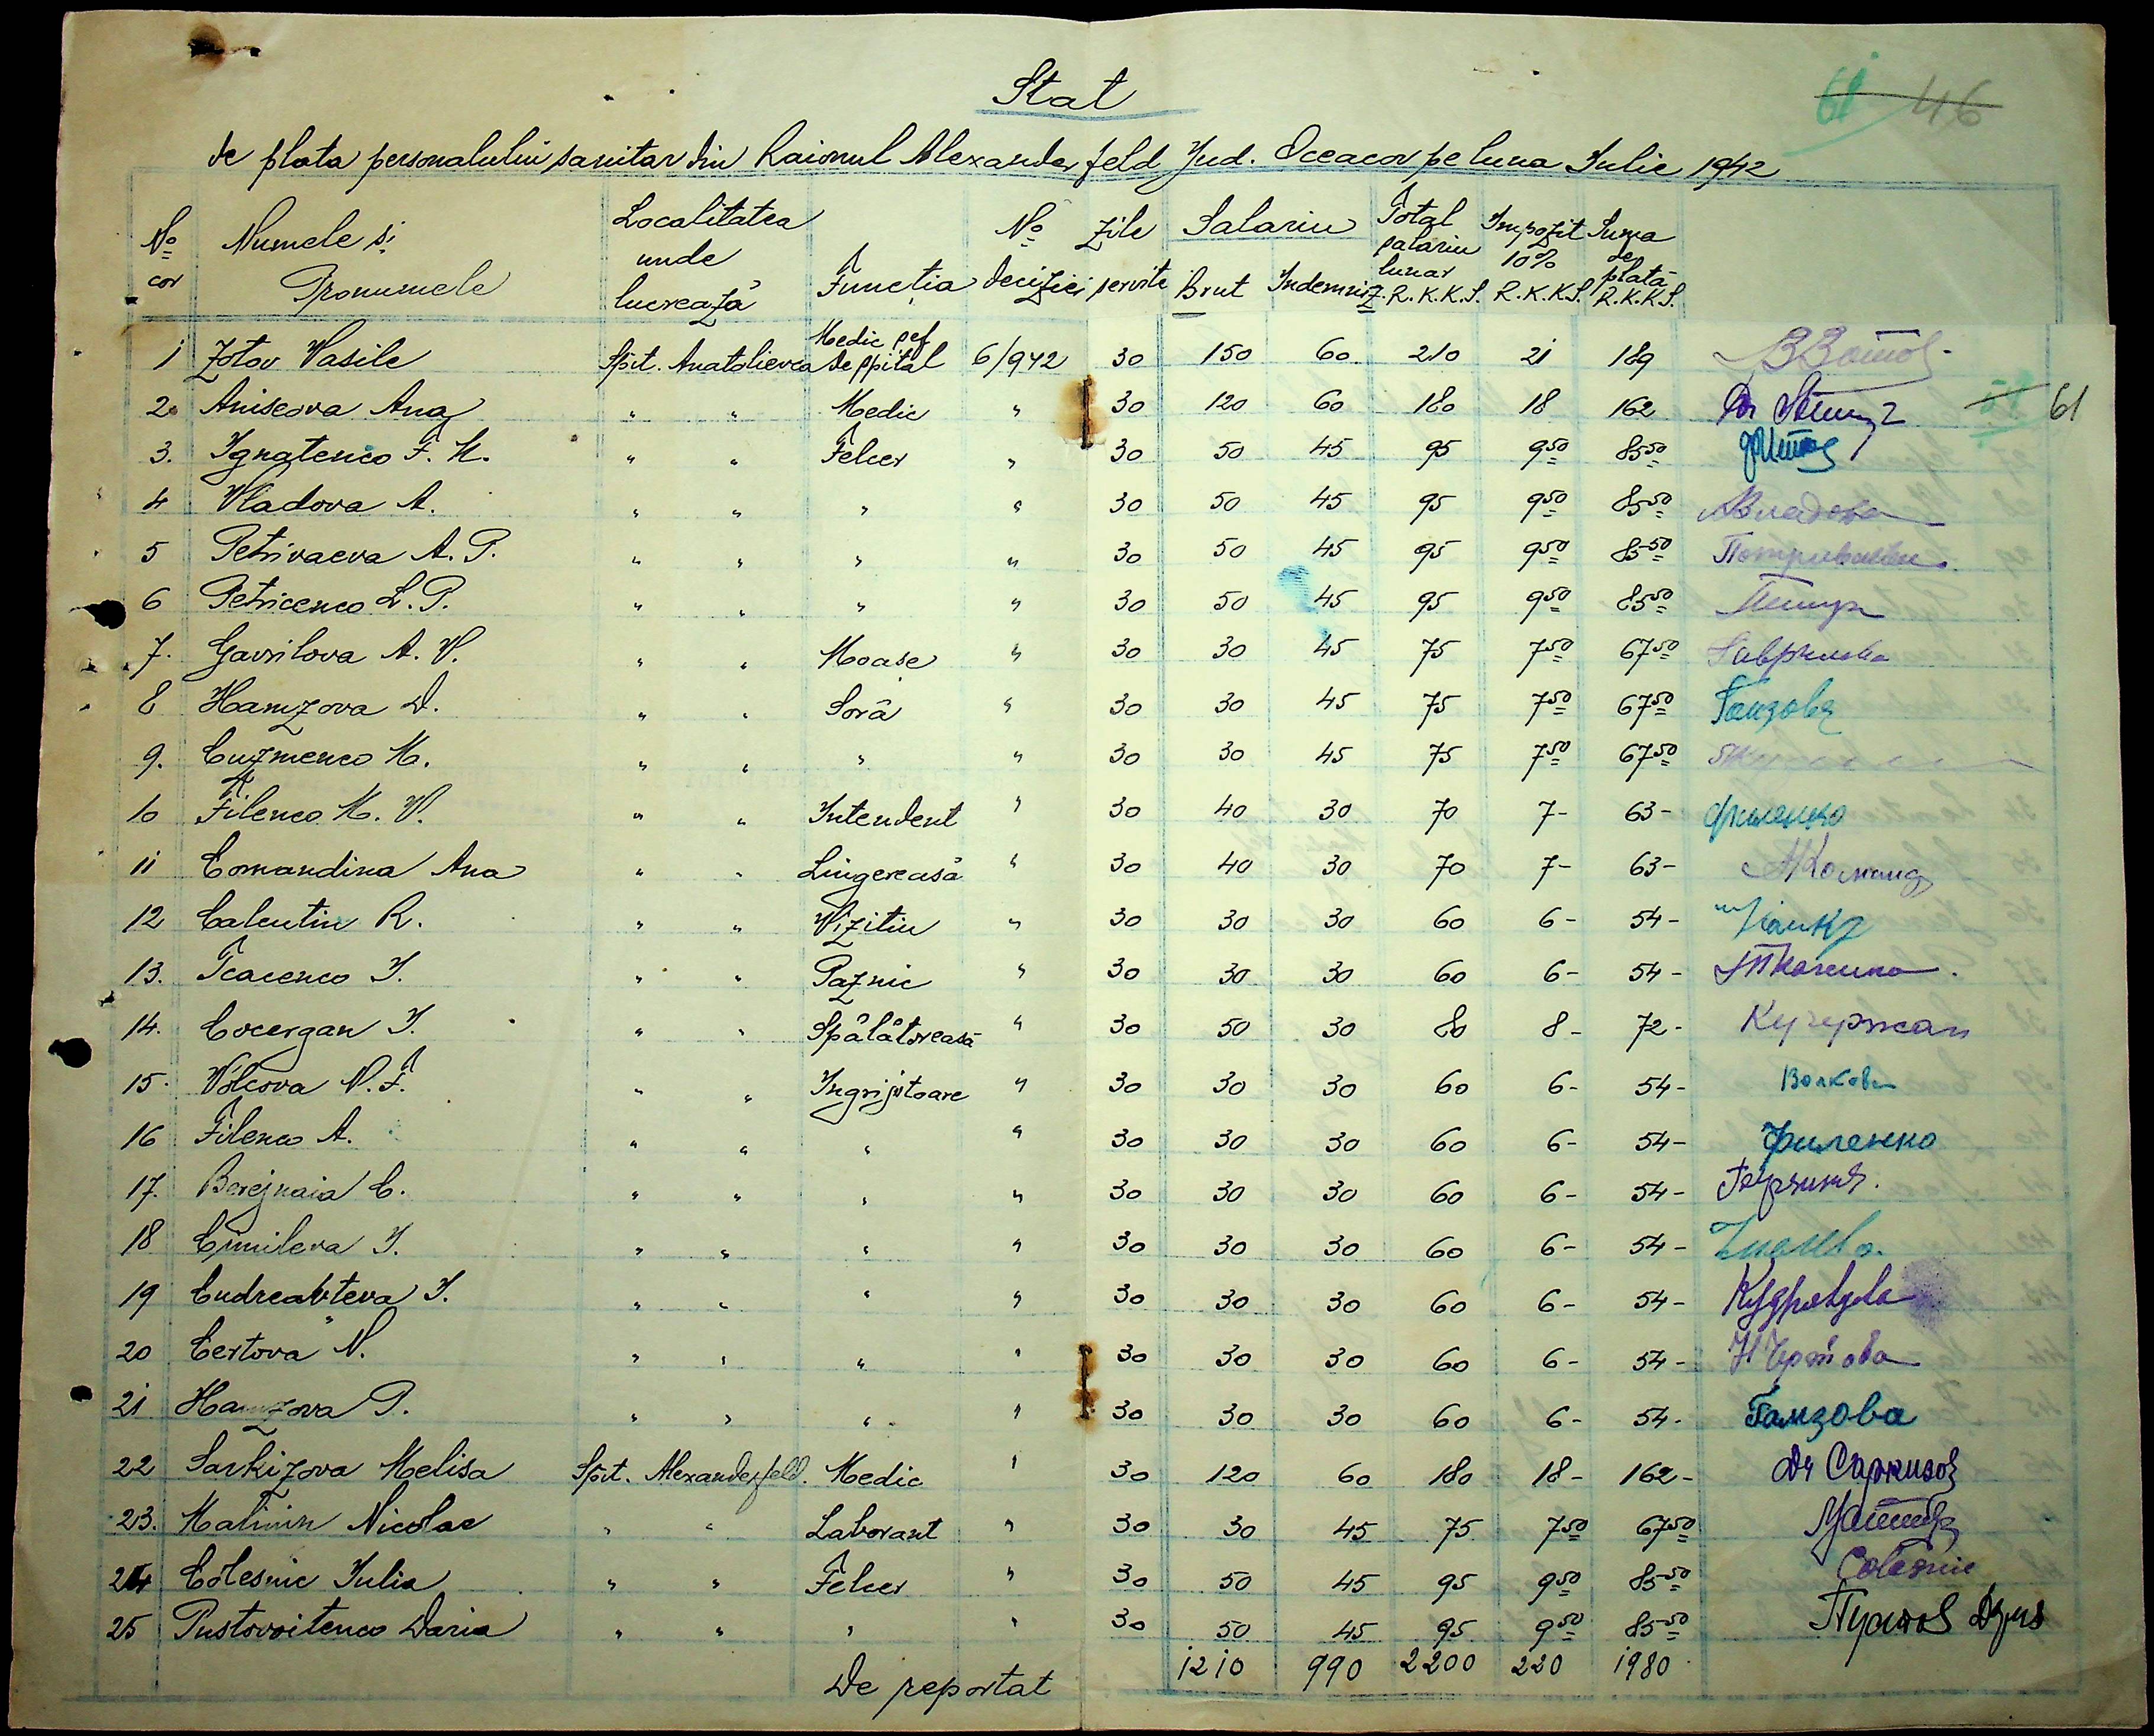 Stat
61 46
de plata personalului sanitar din Raionul Alexanderfeld Jud. Oceacov pe luna Iulie 1942
No cor Numele și Pronumele Localitatea unde lucrează Funcția No deciziei Zile servite Salariu Brut Indemniz. Total salariu lunar R.K.K.S. Impozit 10% R.K.K.S. Suma de plată R.K.K.S.
1 Zotov Vasile Spit. Anatolievca Medic șef de spital 6/942 30 150 60 210 21 189
2. Aniscova Ana " " Medic " 30 120 60 180 18 162 Dr 61
3. Ignatenco F. M. " " Felcer " 30 50 45 95 950 8550
4 Vladova A. " " " " 30 50 45 95 950 8550 АВладова
5 Petrivaeva A. P. " " " " 30 50 45 95 950 8550
6 Petricenco L. P. " " " " 30 50 45 95 950 8550
7. Gavrilova A. V. " " Moașe " 30 30 45 75 750 6750 Гаврилова
8 Hamzova D. " " Soră " 30 30 45 75 750 6750 Гамзова
9. Cuzmenco M. " " " " 30 30 45 75 750 6750
10 Filenco M. V. " " Intendent " 30 40 30 70 7- 63- Филенко
11 Comandina Ana " " Lingereasă " 30 40 30 70 7- 63- АКоманд
12 Calentin R. " " Vizitiu " 30 30 30 60 6- 54-
13. Tcacenco I. " " Paznic " 30 30 30 60 6- 54-
14. Cocergan I. " " Spălătoreasă " 30 50 30 80 8- 72- Кучержан
15. Volcova N. F. " " Ingrijitoare " 30 30 30 60 6- 54- Волкова
16 Filenco A. " " " " 30 30 30 60 6- 54- Филенко
17. Berejnaia C. " " " " 30 30 30 60 6- 54-
18 Cimileva I. " " " " 30 30 30 60 6- 54-
19 Cudreavteva I. " " " " 30 30 30 60 6- 54- Кудрявцева
20 Certova N. " " " " 30 30 30 60 6- 54- НЧертова
21 Hamzova P. " " " " 30 30 30 60 6- 54- Гамзова
22 Sarkizova Melisa Spit. Alexanderfeld. Medic " 30 120 60 180 18- 162- Dr Саркизов
23. Malinin Nicolae " " Laborant " 30 30 45 75 750 6750
24 Colesnic Iulia " " Felcer " 30 50 45 95 950 8550 Colesnic
25 Pustovoitenco Daria " " " " 30 50 45 95 950 8550
De reportat 1210 990 2200 220 1980